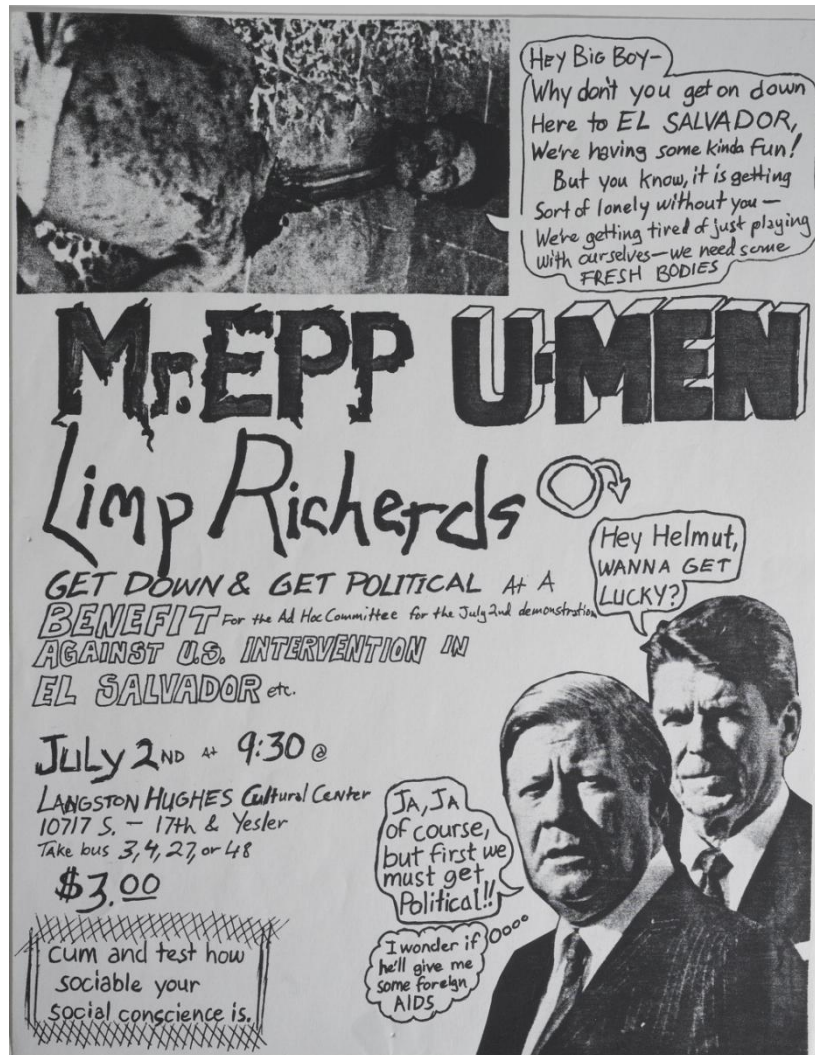 Hey Big Boy-
Why don't you get on down
Here to EL SALVADOR,
We're having some kinda fun!
But you know, it is getting
Sort of lonely without you —
We're getting tired of just playing
with ourselves — we need some
FRESH BODIES
Mr. EPP U-MEN
Limp Richerds
Hey Helmut,
WANNA GET
LUCKY?
GET DOWN & GET POLITICAL At A
BENEFIT For the Ad Hoc Committee for the July 2nd demonstration
AGAINST U.S. INTERVENTION IN
EL SALVADOR etc.
July 2ND At 9:30 @
LANGSTON HUGHES Cultural Center
10717 S. — 17th & Yesler
Take bus 3, 4, 27, or 48
$3.00
JA, JA
of course,
but first we
must get
Political!!
I wonder if
he'll give me
some foreign
AIDS
Cum and test how
sociable your
social conscience is.